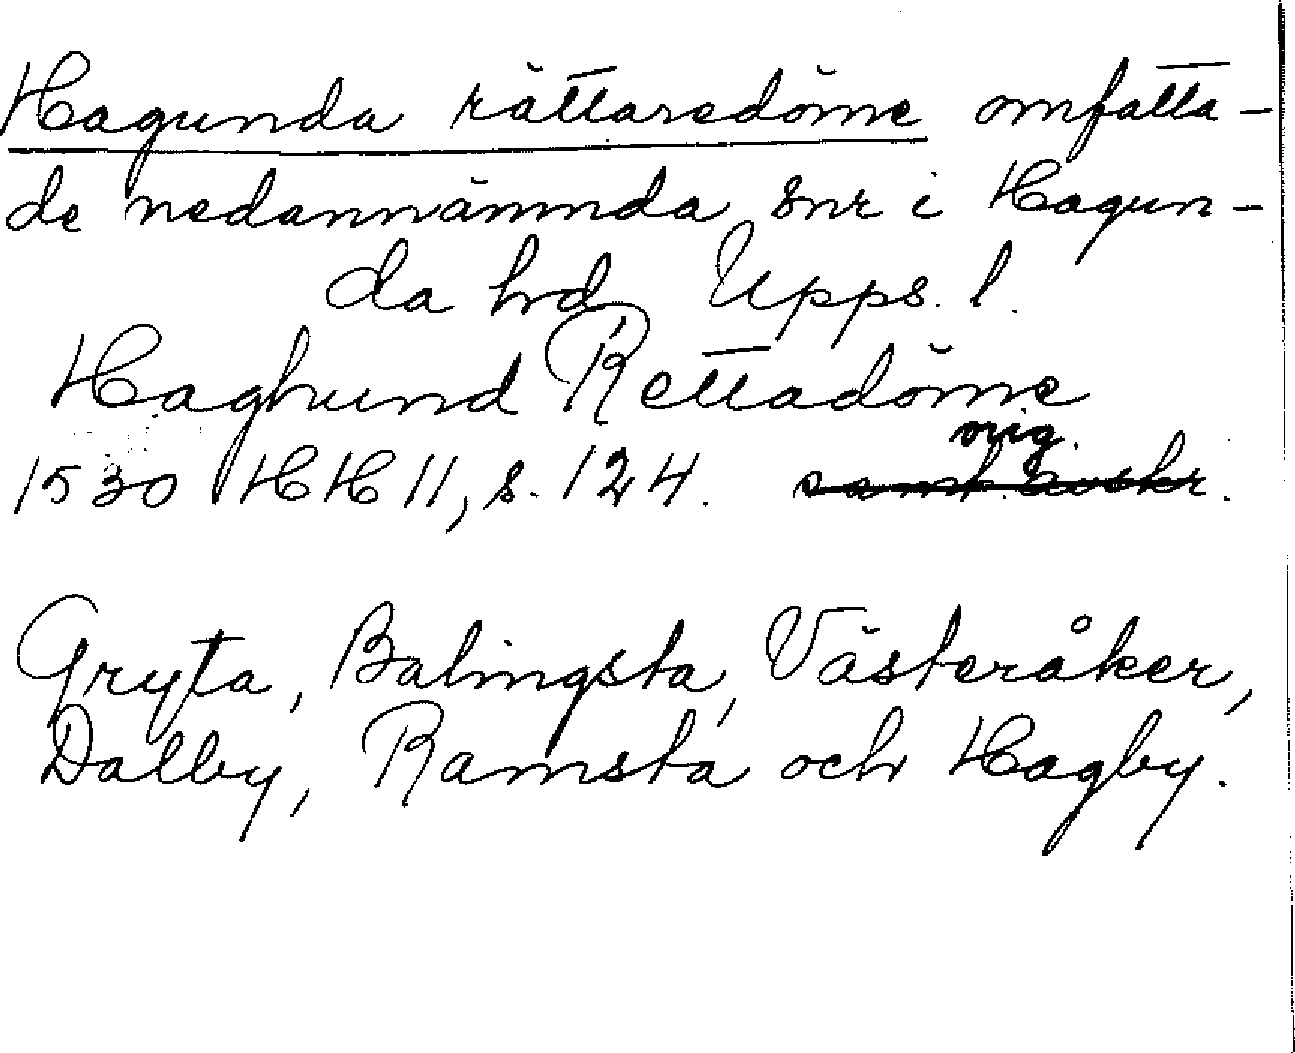 Hagunda rättaredöme omfatta-
de nedannämnda snr i Hagun-
da hrd, Upps. l.
Haghund Rettadöme
orig.
1530 HH 11, s. 124. samt. avskr.
Gryta, Balingsta, Västeråker,
Dalby, Ramsta och Hagby.